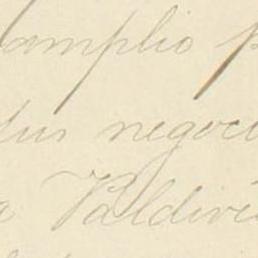 amplio
sus negoci
a Valdivi